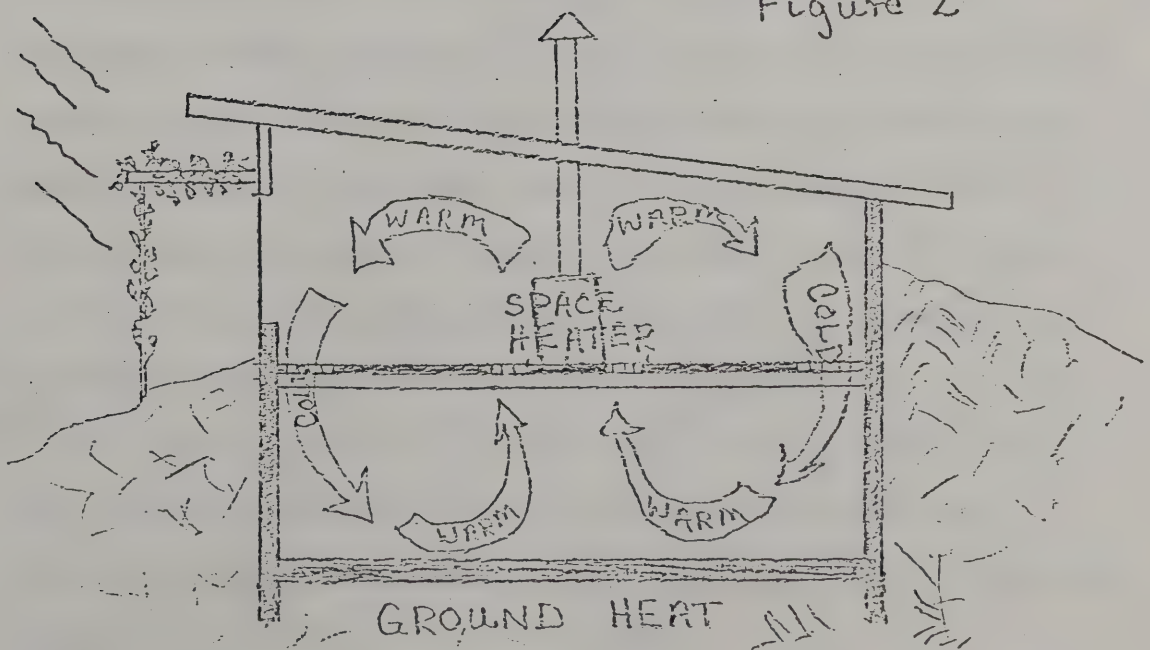 Figure 2
WARM
WARM
SPACE
HEATER
COLD
COLD
WARM
WARM
GROUND HEAT